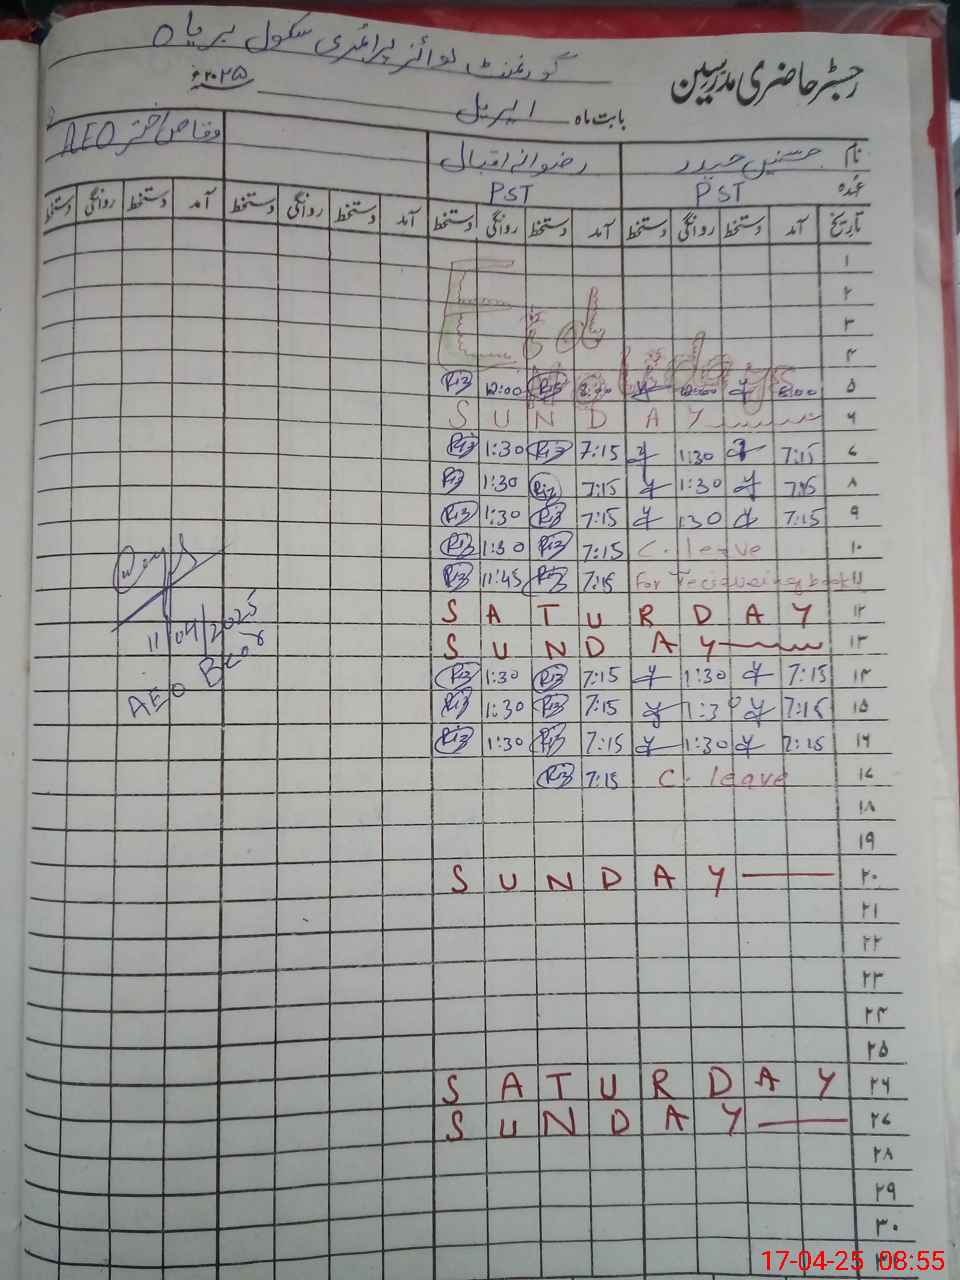 رجسٹر حاضری مدرسین
گورنمنٹ بوائز پرائمری سکول
بابت ماہ اپریل ۲۰۲۵ء
نام حسنین حیدر رضوان اقبال وقاص اختر AEO
عہدہ PST PST
تاریخ آمد دستخط روانگی دستخط آمد دستخط روانگی دستخط آمد دستخط روانگی دستخط آمد دستخط روانگی دستخط
۱
۲
۳
۴
Eid Holidays
۵ 8:00 12:00 12:00 Riz
۶ SUNDAY
۷ 7:15 1:30 7:15 Riz 1:30 Riz
۸ 7:15 1:30 7:15 Riz 1:30 Riz
۹ 7:15 1:30 7:15 Riz 1:30 Riz
۱۰ C. leave 7:15 Riz 1:30 Riz
۱۱ For 7:15 Riz 11:45 Riz
۱۲ SATURDAY
۱۳ SUNDAY
۱۴ 7:15 1:30 7:15 Riz 1:30 Riz
۱۵ 7:15 1:30 7:15 Riz 1:30 Riz
۱۶ 7:15 1:30 7:15 Riz 1:30 Riz
۱۷ C. leave 7:15 Riz
۱۸
۱۹
۲۰ SUNDAY
۲۱
۲۲
۲۳
۲۴
۲۵
۲۶ SATURDAY
۲۷ SUNDAY
۲۸
۲۹
۳۰
11/04/2025
AEO
17-04-25 08:55